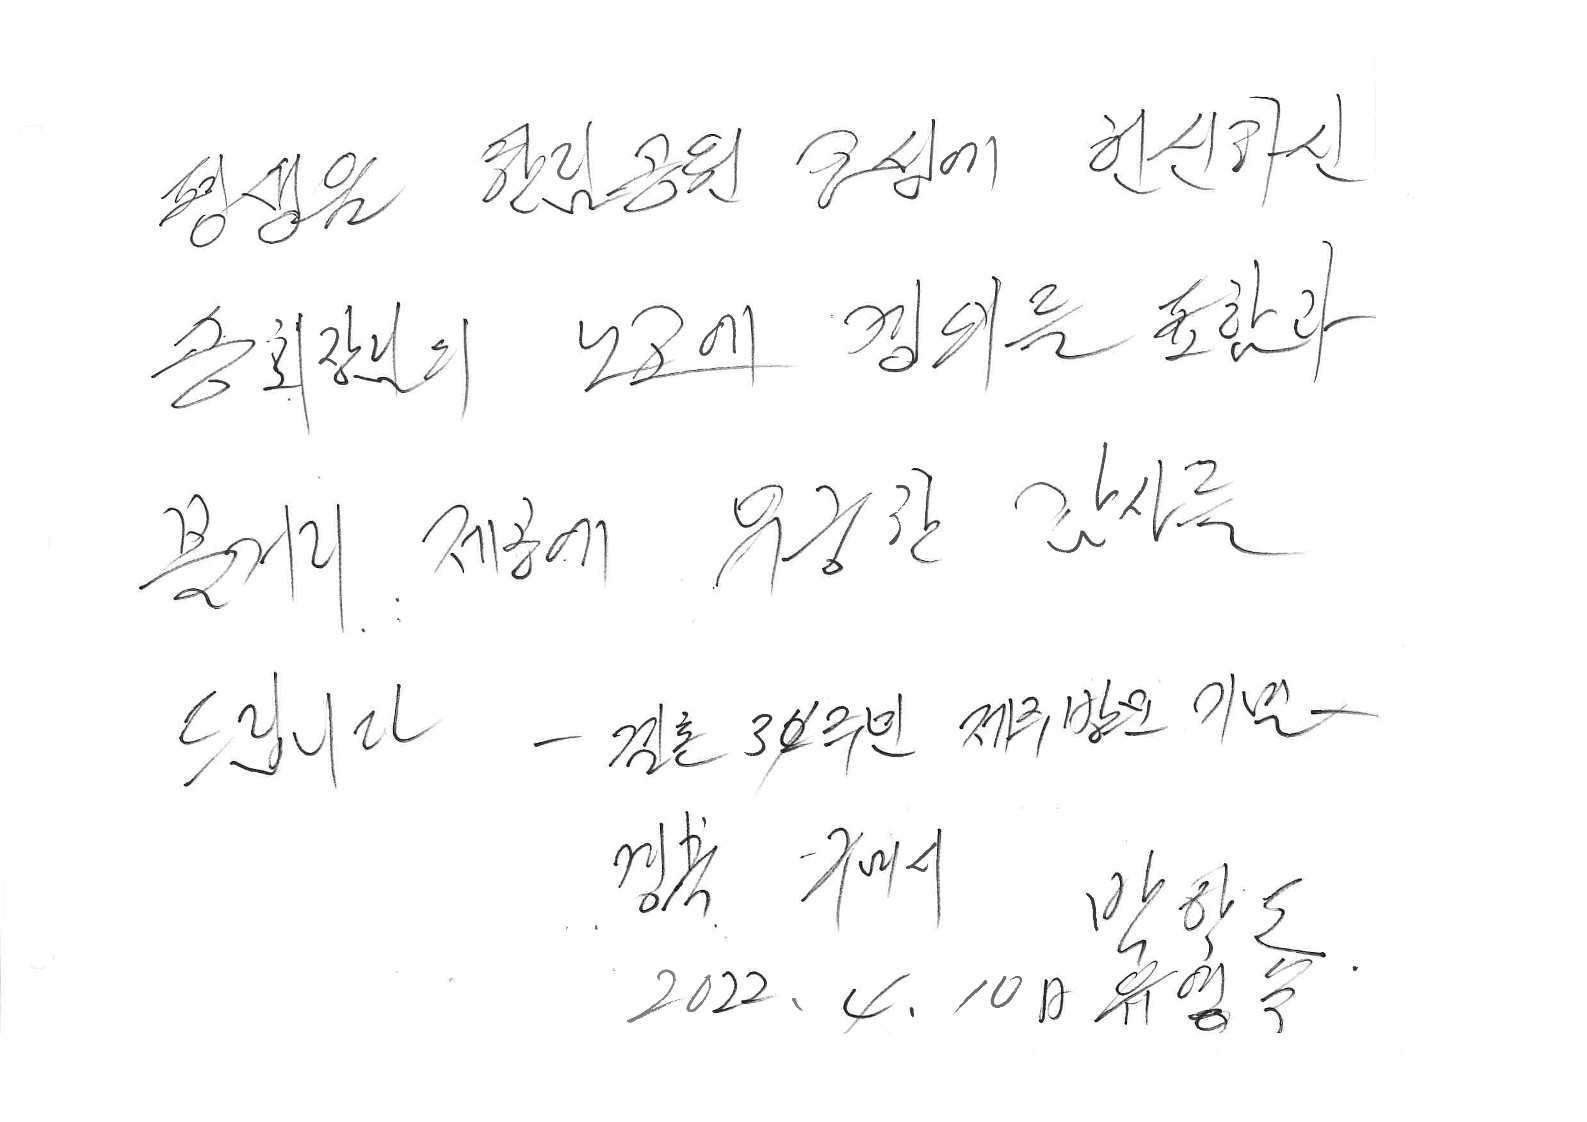 평생을 한림공원 조성에 헌신하신
송회장님의 노고에 경의를 표함과
볼거리 제공에 무궁한 감사를
드립니다 - 결혼 34주년 제주방문 기념 -
경북 구미시 박학도
2022. 4. 10日 유영숙